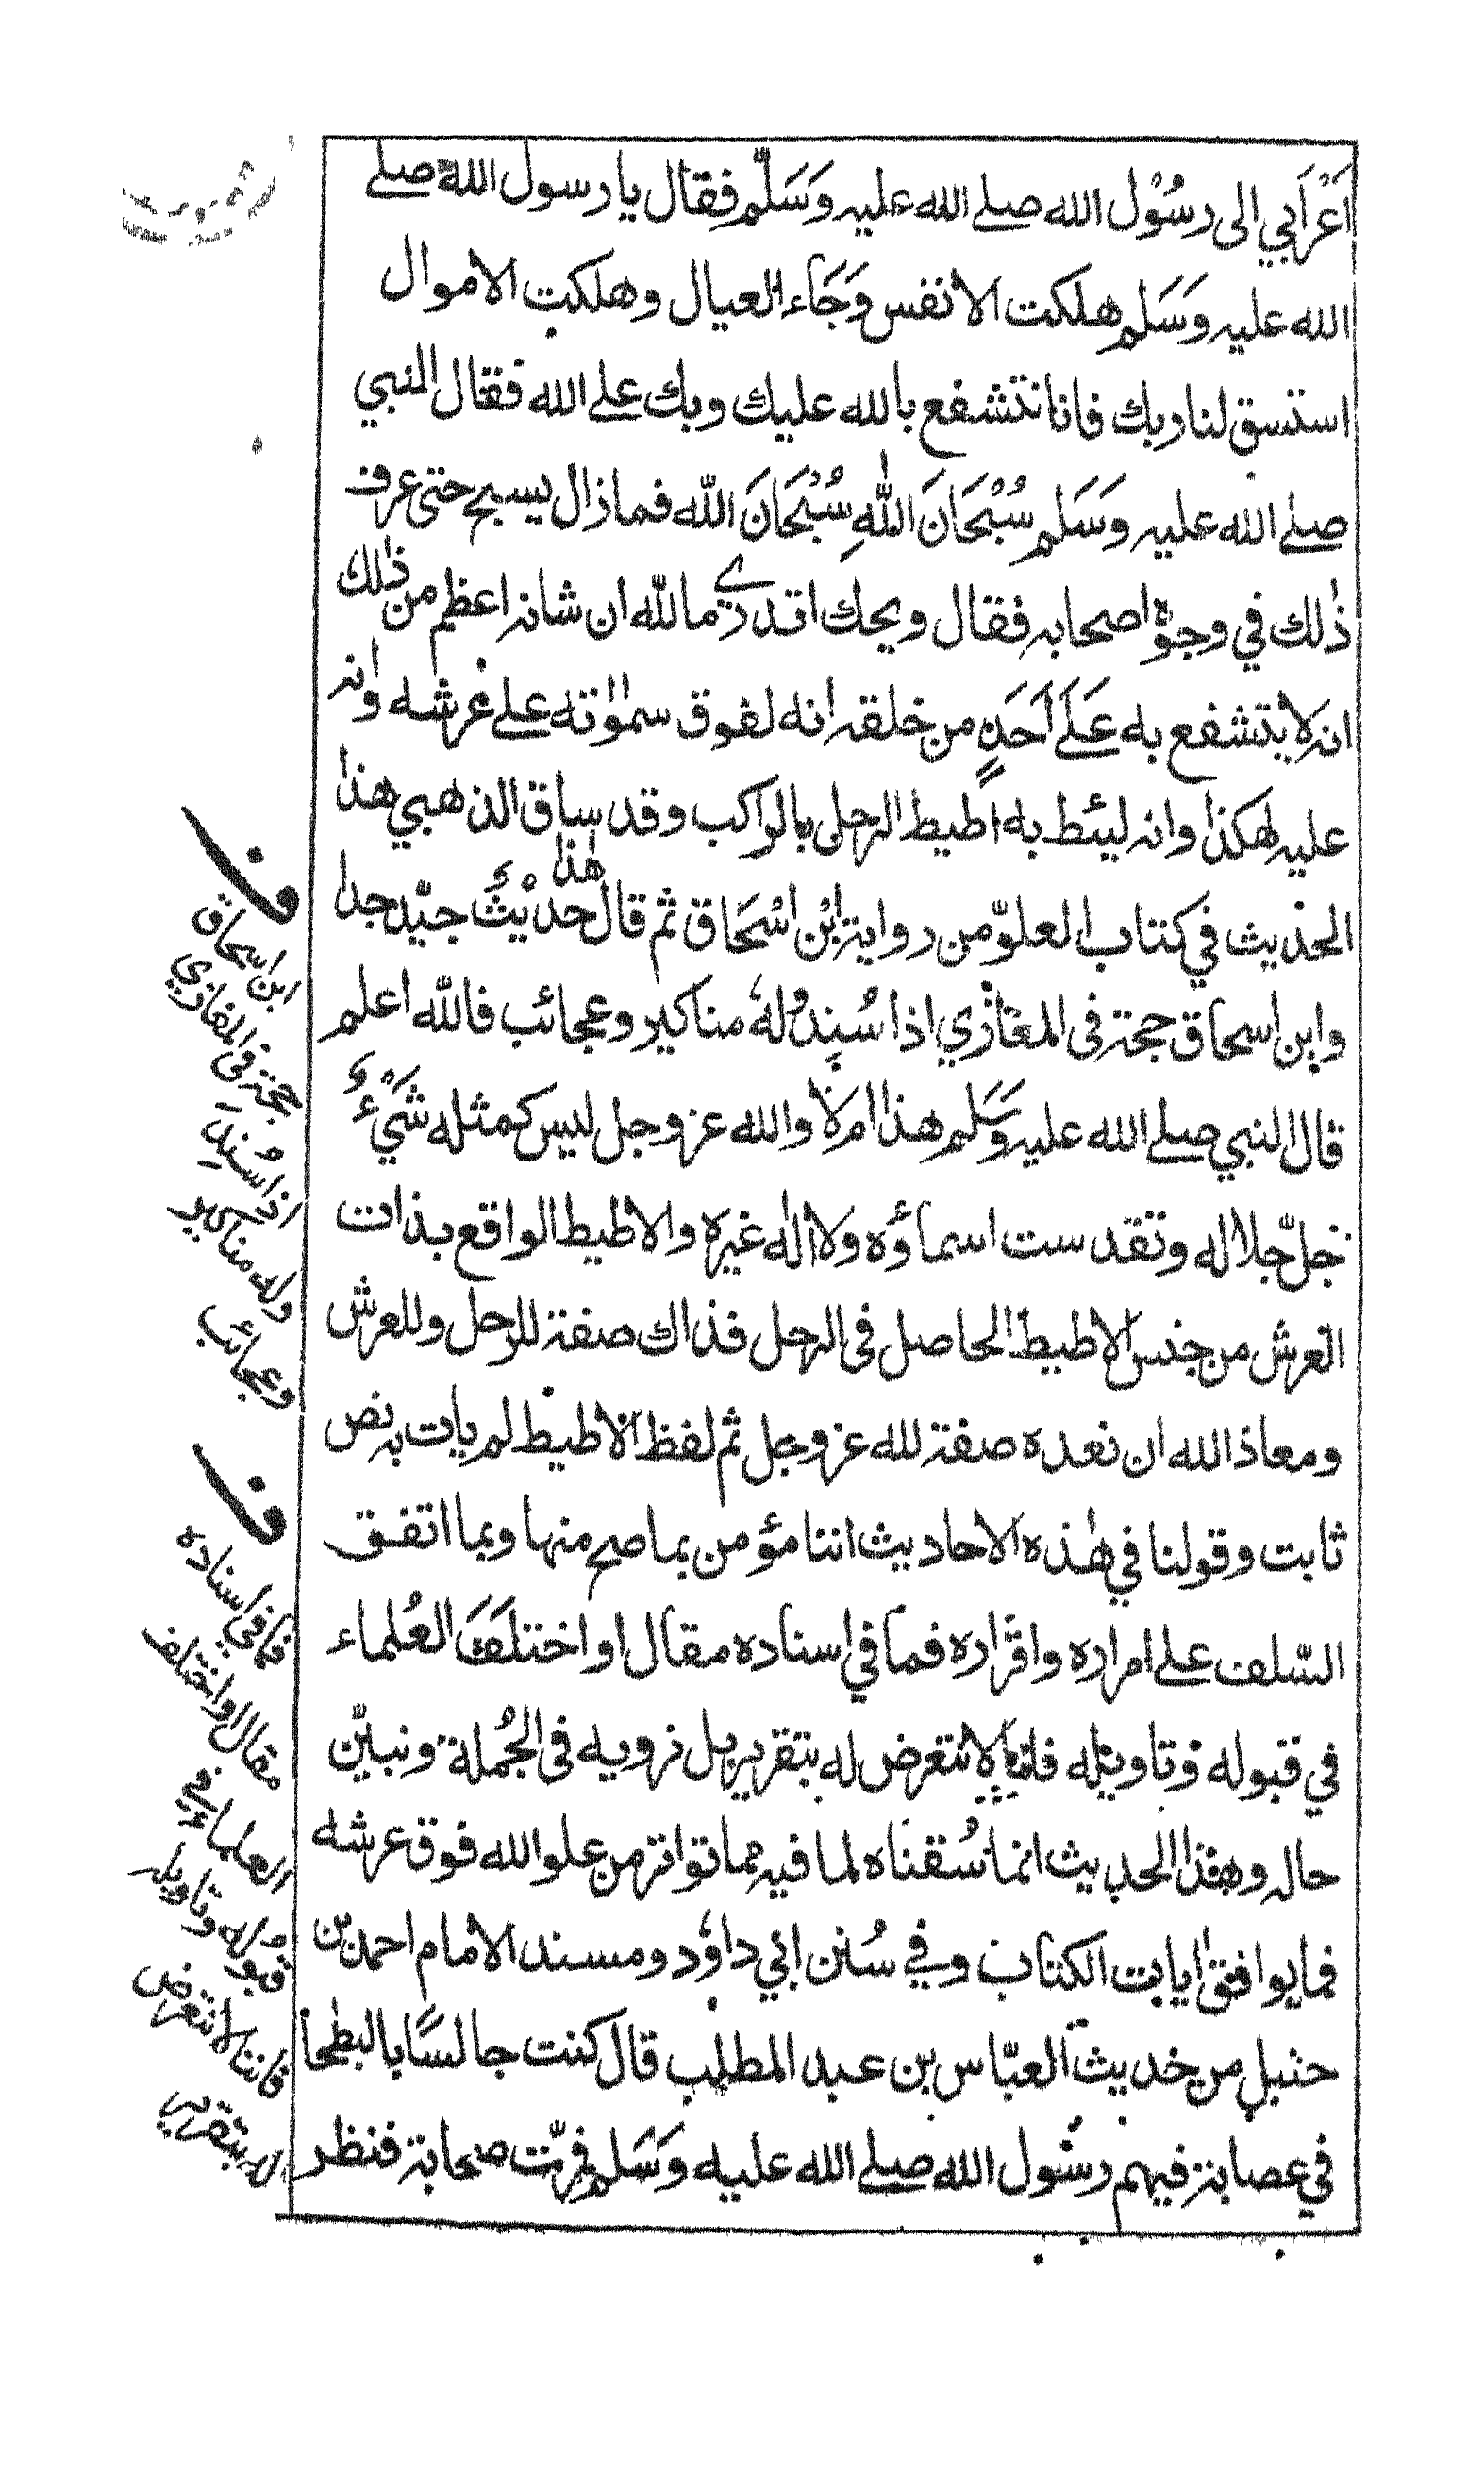 اَعْرَابي الى رسُوْل الله صلے الله عليه وَسَلّم فقال يا رسول الله صلے
الله عليه وَسَلم هلكت الانفس وَجَاء العيال وهلكت الاموال
استسق لنا ربك فانا نتشفع بالله عليك وبك علے الله فقال النبي
صلے الله عليه وَسَلم سُبْحَانَ اللهِ سُبْحَانَ الله فما زال يسبح حتى عرف
ذلك في وجوه اصحابه فقال ويحك اتدري ما الله ان شانه اعظم من ذلك
انه لا يتشفع به عَلَے اَحَدٍ من خلقه انه لفوق سمٰوٰته علے عرشه وانه
عليه لهكذا وانه ليئط به اطيط الرحل بالراكب وقد ساق الذهبي هذا
الحديث في كتاب العلوّ من رواية ابْن اسْحَاق ثم قال هذا حديْثٌ جيّد جدا
وابن اسحاق حجة فى المغازي اذا سُنِد وله مناكير وعجائب فالله اعلم
قال النبي صلے الله عليه وَسَلم هذا ام لا والله عز وجل ليس كمثله شَيْءٌ
جلّ جلاله وتقدّست اسماؤه ولا اله غيره والاطيط الواقع بذات
العرش من جنس الاطيط الحاصل فى الرحل فذاك صفة للرحل وللعرش
ومعاذ الله ان نعده صفة لله عز وجل ثم لفظ الاطيط لم يات به نص
ثابت وقولنا في هٰذه الاحاديث اننا مؤمن بما صح منها وبما اتفق
السّلف علے امراره واقراره فما في اسناده مقال او اختلَفَ العُلماء
في قبوله وتاويله فانما لا نتعرض له بتقرير بل نرويه فى الجُملة ونبيّن
حاله وهذا الحديث انما سُقناه لما فيه مما تواتر من علو الله فوق عرشه
فما يوافق ايات الكتاب وفي سُنن ابي داوٗد ومسند الامام احمد بن
حنبل من حديث العبّاس بن عبد المطلب قال كنت جالسًا بالبطحا
في عصابة فيهم رسُول الله صلے الله عليه وَسَلم فمرّت صحابة فنظر
ف
ابن اسحاق
حجة فى المغازي
اذا سُندِ
وله مناكير
وعجائب
ف
فما في اسناده
مقال او اختلف
العلماء في
قبوله وتاويله
فاننا لا نتعرض
له بتقرير